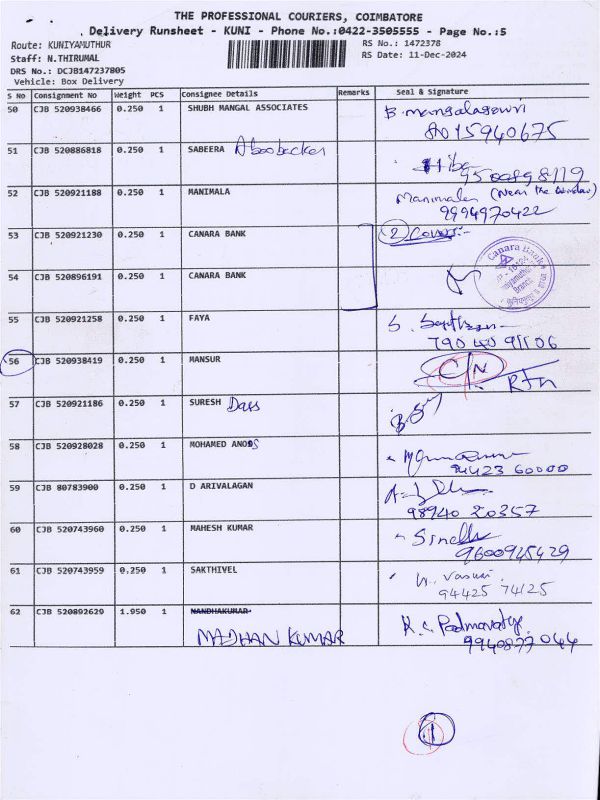 THE PROFESSIONAL COURIERS, COIMBATORE
Delivery Runsheet - KUNI - Phone No.:0422-3505555 - Page No.:5
Route: KUNIYAMUTHUR RS No.: 1472378
Staff: N.THIRUMAL RS Date: 11-Dec-2024
DRS No.: DCJB147237805
Vehicle: Box Delivery
S No Consignment No Weight PCS Consignee Details Remarks Seal & Signature
50 CJB 520938466 0.250 1 SHUBH MANGAL ASSOCIATES B. mangalagowri
8015940675
51 CJB 520886818 0.250 1 SABEERA Aboobacker Hiba
9500898119
52 CJB 520921188 0.250 1 MANIMALA Manimala (Near the
9994970422
53 CJB 520921230 0.250 1 CANARA BANK (2) Cover:-
54 CJB 520896191 0.250 1 CANARA BANK
Canara Bank
Branch
55 CJB 520921258 0.250 1 FAYA S.
790 40 91106
56 CJB 520938419 0.250 1 MANSUR C/N RTN
57 CJB 520921186 0.250 1 SURESH Dass
58 CJB 520928028 0.250 1 MOHAMED ANOOS
94423 60000
59 CJB 80783900 0.250 1 D ARIVALAGAN
98940 20357
60 CJB 520743960 0.250 1 MAHESH KUMAR
9600945429
61 CJB 520743959 0.250 1 SAKTHIVEL
94425 74125
62 CJB 520892629 1.950 1 NANDHAKUMAR R.S. Padmavathy
MADHAN KUMAR 9940877044
1